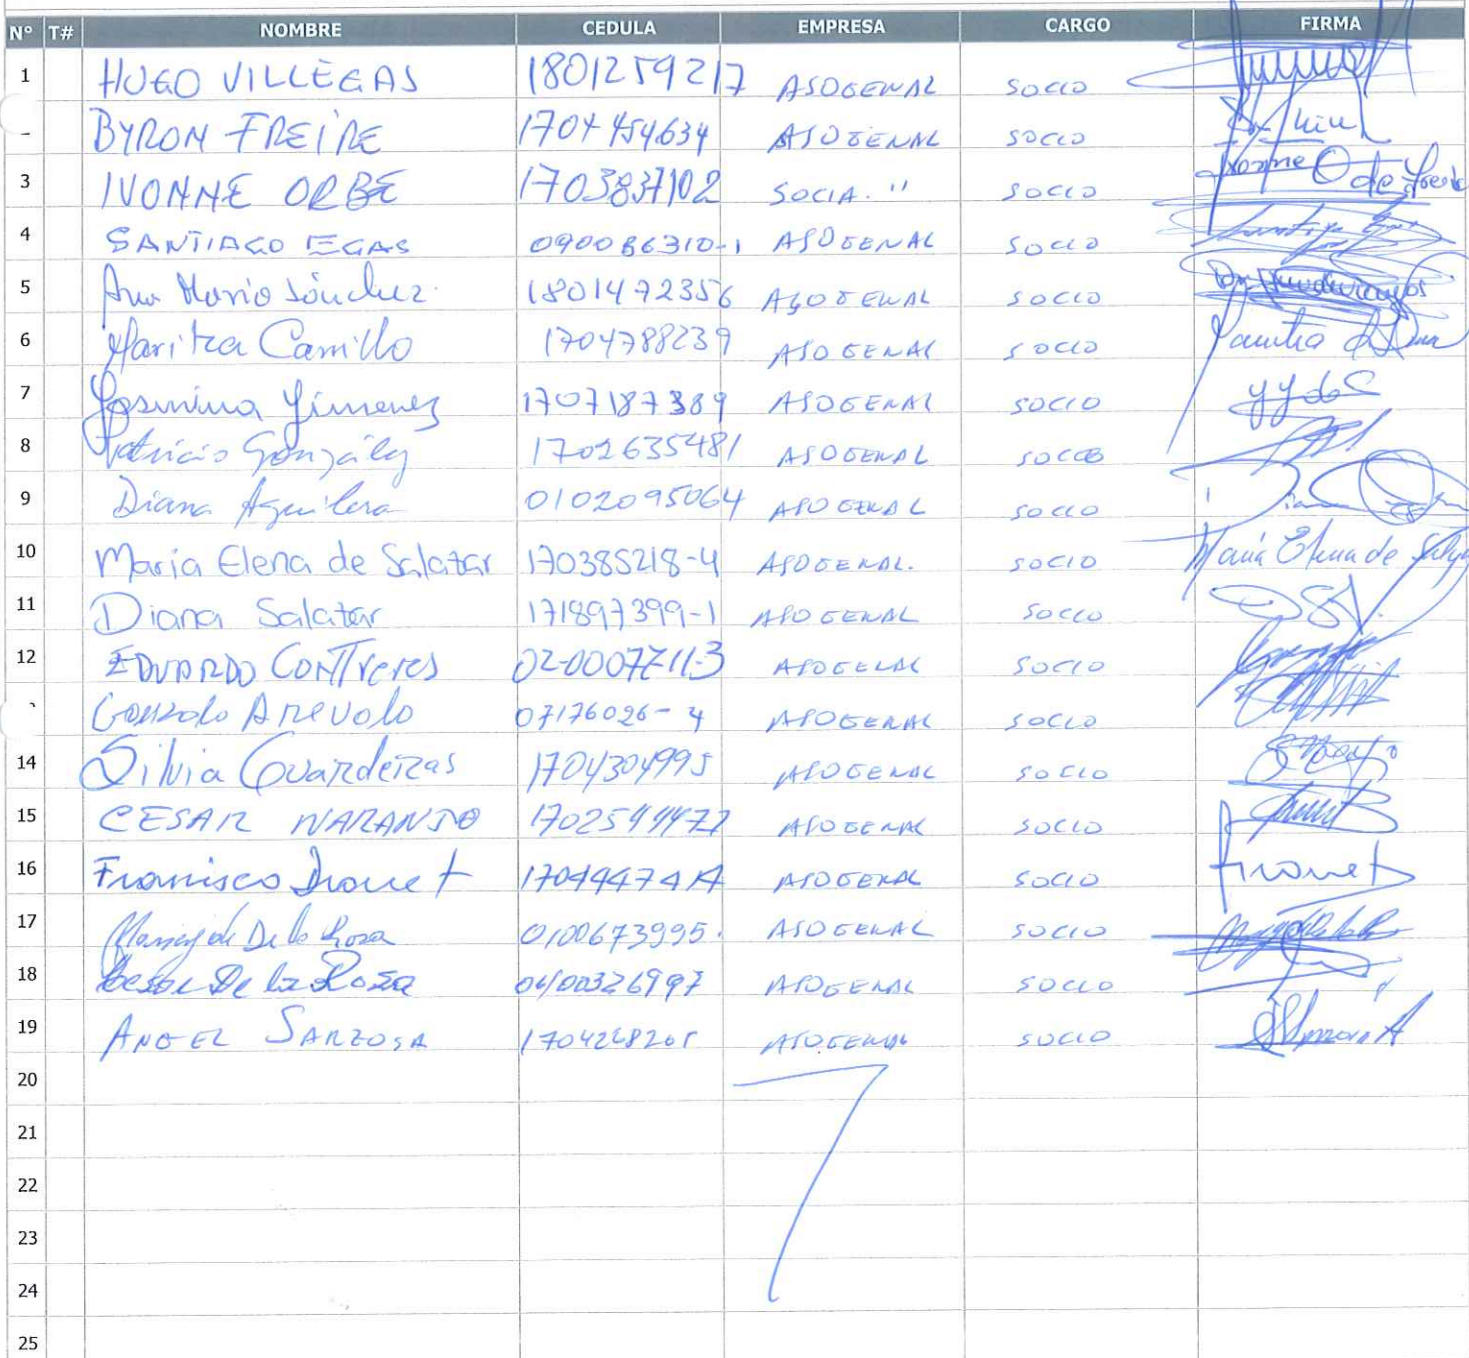 N° T# NOMBRE CEDULA EMPRESA CARGO FIRMA
1 HUGO VILLEGAS 1801259217 ASOGENAL SOCIO
BYRON FREIRE 1704454634 ASOGENAL SOCIO
3 IVONNE ORBE 1703837102 SOCIA. " SOCIO Ivonne O de Freire
4 SANTIAGO EGAS 090086310-1 ASOGENAL SOCIO
5 Ana Maria Sánchez 1801472356 ASOGENAL SOCIO
6 Maritza Carrillo 1704788239 ASOGENAL SOCIO
7 Yosmina Yimenez 1707187389 ASOGENAL SOCIO
8 Patricio González 1702635481 ASOGENAL SOCIO
9 Diana Aguilera 0102095064 ASOGENAL SOCIO
10 Maria Elena de Salazar 170385218-4 ASOGENAL. SOCIO María Elena de
11 Diana Salazar 171897399-1 ASOGENAL SOCIO
12 EDUARDO CONTreres ASOGENAL SOCIO
Gonzalo Arevalo 07176026-4 ASOGENAL SOCIO
14 Silvia Guarderas 1704304995 ASOGENAL SOCIO
15 CESAR NARANJO ASOGENAL SOCIO
16 Francisco Dronet ASOGENAL SOCIO
17 De la Rosa 0100673995. ASOGENAL SOCIO
18 Cesar De la Rosa 0400326997 ASOGENAL SOCIO
19 ANGEL SARZOSA ASOGENAL SOCIO
20
21
22
23
24
25